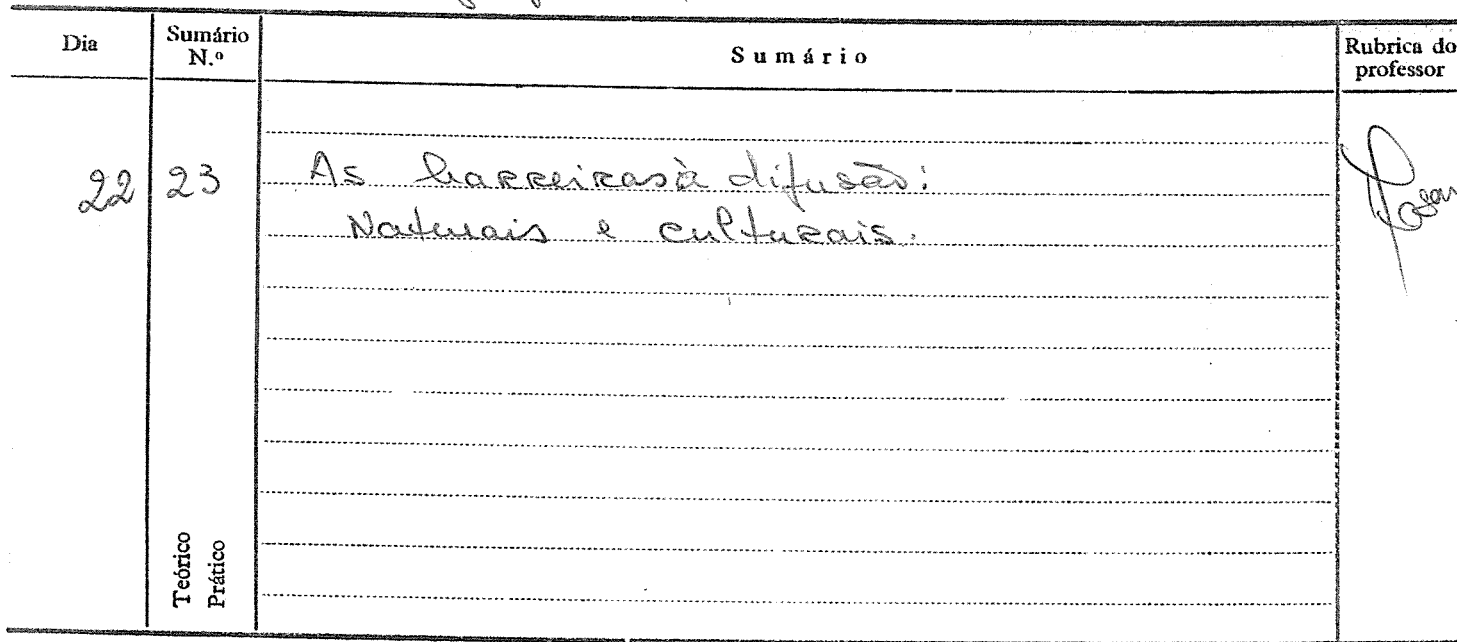 Dia
Sumário N.º
Sumário
Rubrica do professor
22
23
As barreiras à difusão:
Naturais e culturais.
Teórico
Prático